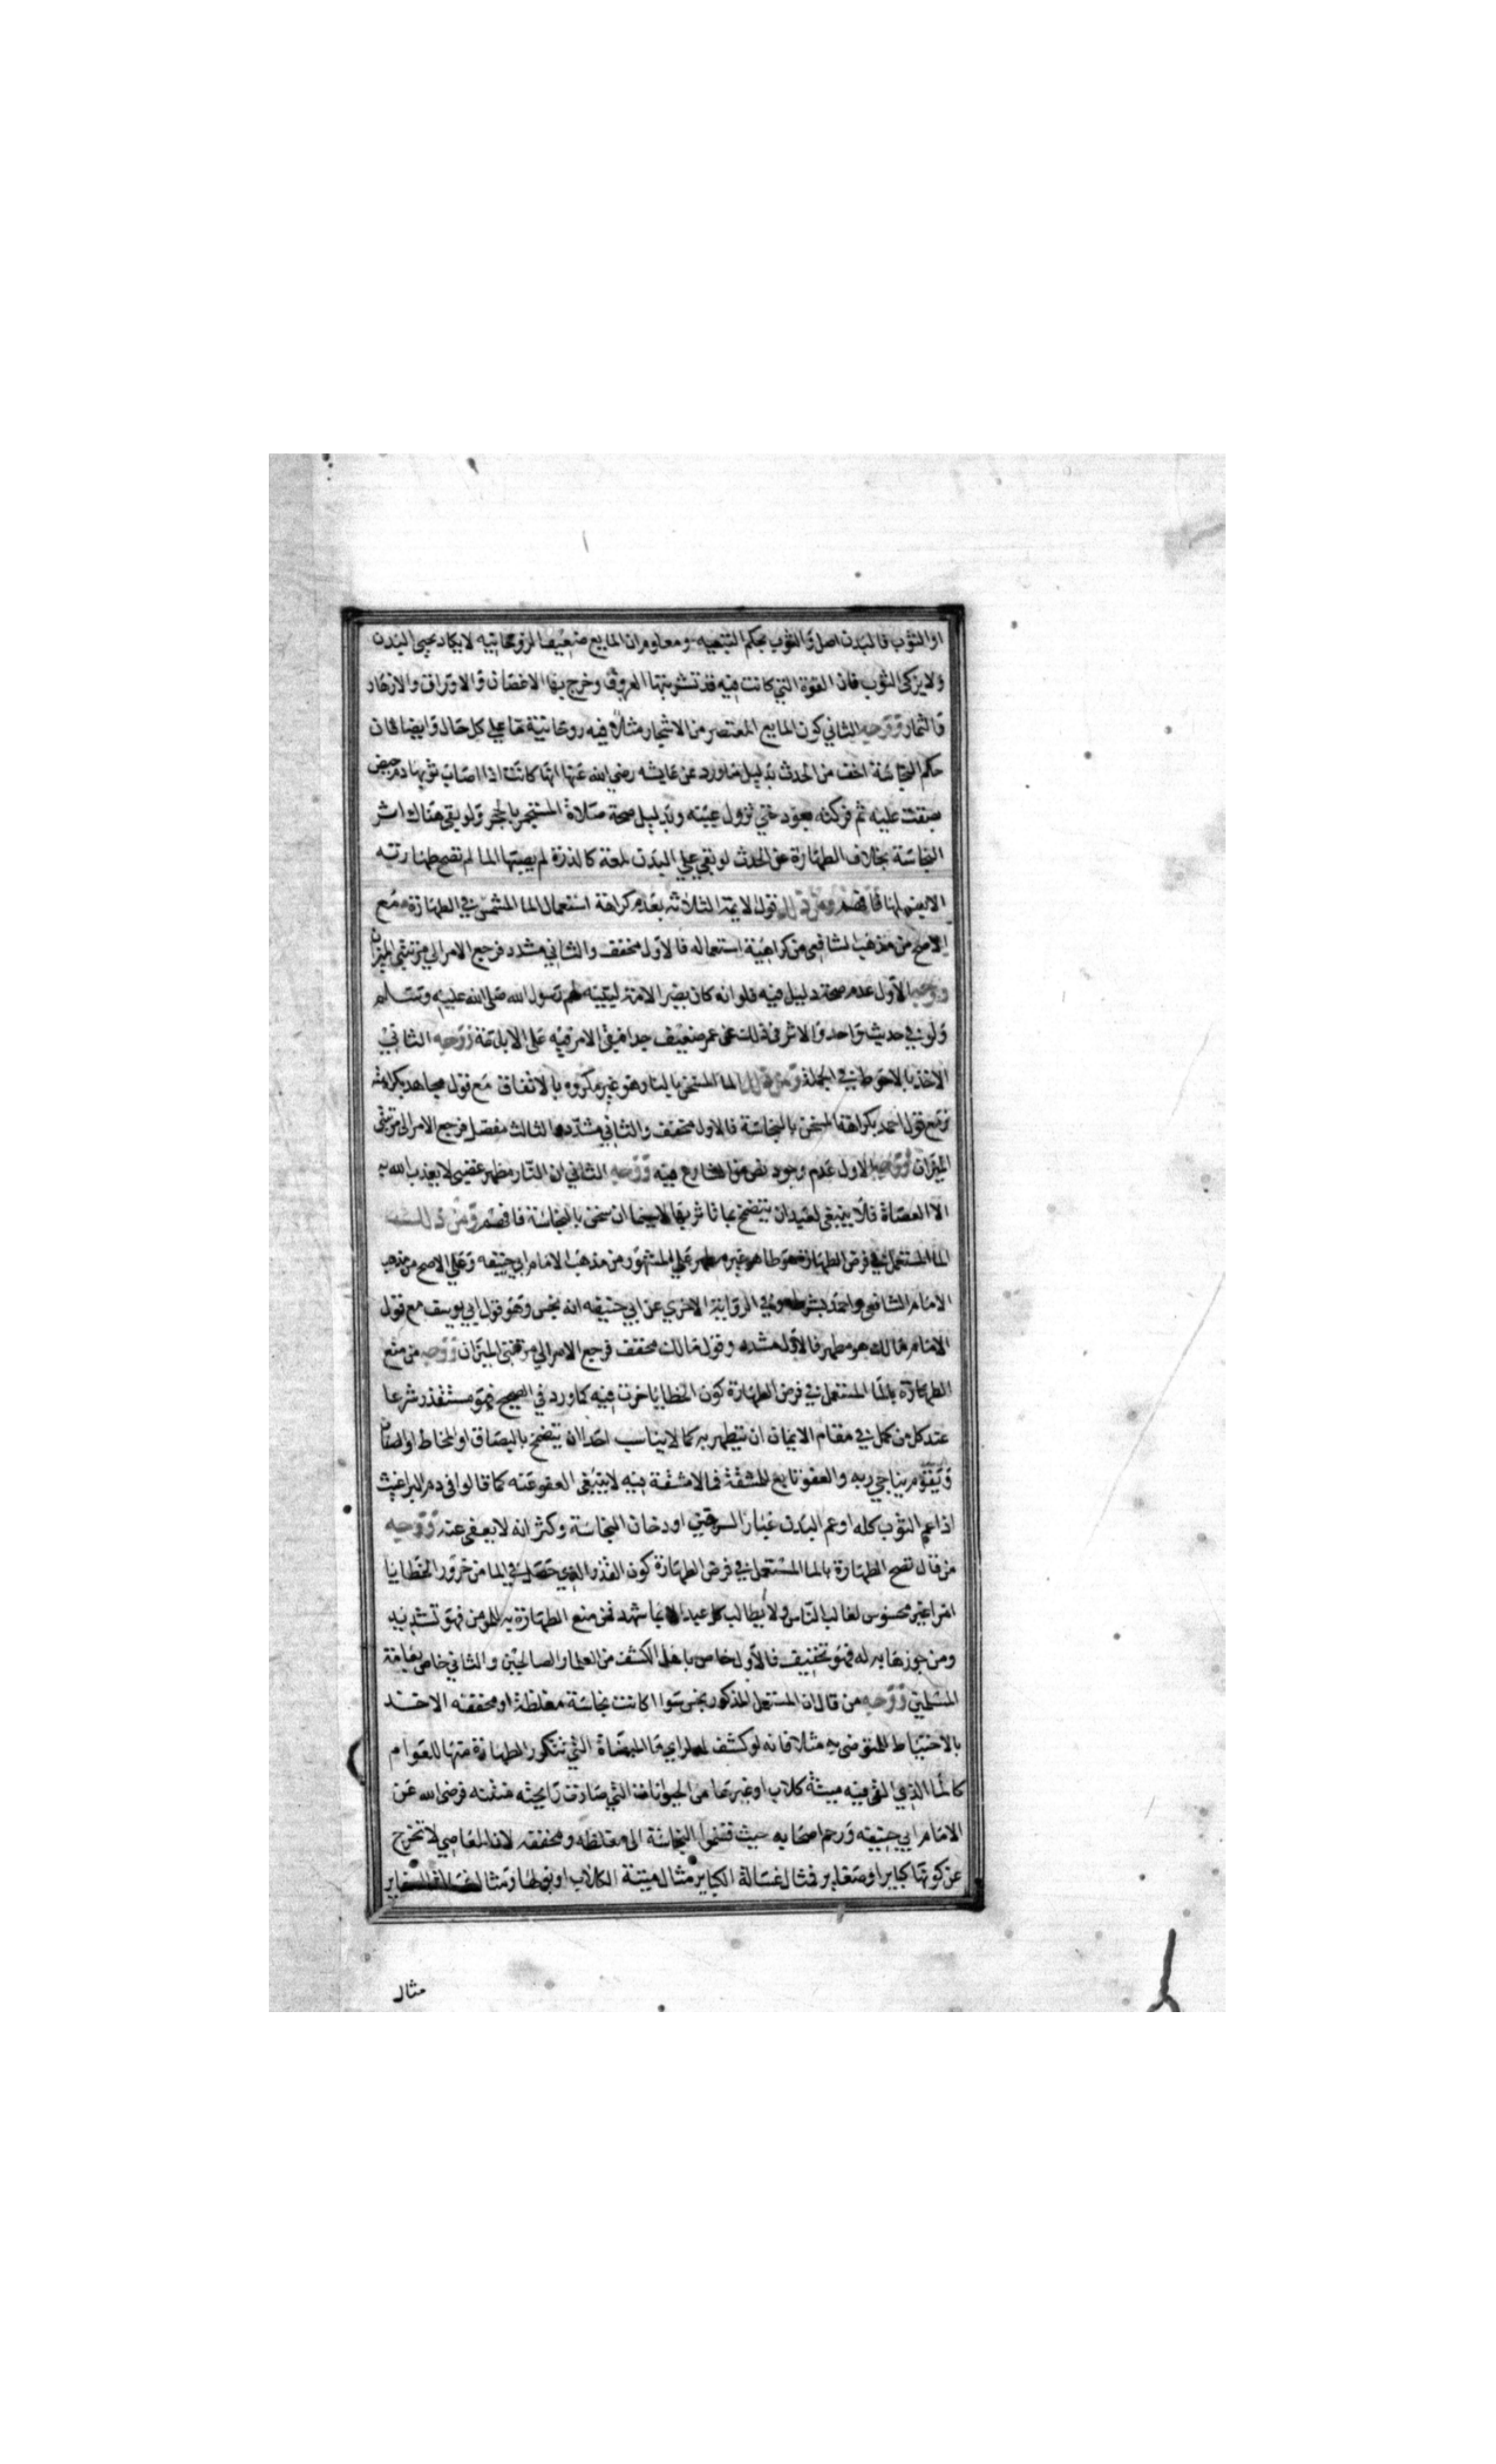 او الثوب فالبدن اصل والثوب بحكم التبعيه ومعلوم ان المايع ضعيف الروحانيه لا يكاد يحيي البدن
ولا يزكى الثوب فان القوة التي كانت فيه قد تشربتها العروق وخرج بها الاغصان والاوراق والازهار
والثمار ووجه الثاني كون المايع المعتصر من الاشجار مثلا فيه روحانية ما على كل حال وايضا فان
حكم النجاسة اخف من الحدث بدليل ما ورد عن عايشه رضي الله عنها انها كانت اذا اصاب ثوبها دم حيض
بصقت عليه ثم فركته بعود حتي تزول عينه وبدليل صحة صلاة المستجمر بالحجر ولو بقي هناك اثر
النجاسة بخلاف الطهارة عن الحدث لو بقي علي البدن لمعة كالذرة لم يصبها الما لم تصح طهارته
فافهم ومن ذلك قول الايمة الثلاثة بعدم كراهة استعمال الما المشمس في الطهارة مع
الاصح من مذهب الشافعي من كراهية استعماله فالاول مخفف والثاني مشدد فرجع الامر الي مرتبتي الميزان
ووجه الاول عدم صحة دليل فيه فلو انه كان يضر الامة لبينه لهم رسول الله صلى الله عليه وسلم
ولو في حديث واحد والاثر في ذلك عن عمر ضعيف جدا فبقي الامر فيه على الاباحة ووجه الثاني
الاخذ بالاحتوط في الجملة ومن ذلك الما المسخن بالنار هو غير مكروه بالاتفاق مع قول مجاهد بكراهته
ومع قول احمد بكراهة المسخن بالنجاسة فالاول مخفف والثاني مشدد والثالث مفصل فرجع الامر الى مرتبتي
الميزان ووجه الاول عدم وجود نص من الشارع فيه ووجه الثاني ان النار مظهر غضبي لا يعذب الله به
الا العصاة فلا ينبغي لعبد ان يتضمخ بما تاثر بها لاسيما ان سخن بالنجاسة فافهم ومن ذلك
الما المستعمل في فرض الطهارة هو طاهر غير مطهر علي المشهور من مذهب الامام ابي حنيفه وعلي الاصح من مذهب
الامام الشافعي واحمد بشرطه وفي الرواية الاخري عن ابي حنيفه انه نجس وهو قول ابي يوسف مع قول
الامام مالك هو مطهر فالاول مشدد وقول مالك مخفف فرجع الامر الي مرتبتي الميزان ووجه من منع
الطهارة بالما المستعمل في فرض الطهارة كون الخطايا خرت فيه كما ورد في الصحيح فهو مستقذر شرعا
عند كل من كمل في مقام الايمان ان يتطهر به كما لا يناسب احدا ان يتضمخ بالبصاق او المخاط او الصنان
ويقوم يناجي ربه والعفو تابع للمشقة فما لا مشقة فيه لا ينبغي العفو عنه كما قالوا في دم البراغيث
اذا عم الثوب كله او عم البدن غبار السرجين او دخان النجاسة وكثر انه لا يعفى عنه ووجه
من قال تصح الطهارة بالما المستعمل في فرض الطهارة كون القذر الذي حصل في الما من خرور الخطايا
امرا غير محسوس لغالب الناس ولا يطالب كل عبد الا بما شهد فمن منع الطهارة به للمومن فهو تشديد
ومن جوزها به له فهو تخفيف فالاول خاص باهل الكشف من العلما والصالحين والثاني خاص بعامة
المسلمين ووجه من قال ان المستعمل المذكور نجس سوا كانت نجاسة مغلظة او مخففه الاخذ
بالاحتياط للمتوضي به مثلا فانه لو كشف له لراي ما الميضاة التي تتكرر الطهارة منها للعوام
كالما الذي القي فيه ميتة كلاب او غيرها من الحيوانات التي صارت رايحته منتنه فرضي الله عن
الامام ابي حنيفه ورحم اصحابه حيث قسموا النجاسة الى مغلظه ومخففه لان المعاصي لا تخرج
عن كونها كباير او صغاير فمثال غسالة الكباير مثال ميتة الكلاب او بولها ومثال غسالة الصغاير
مثال